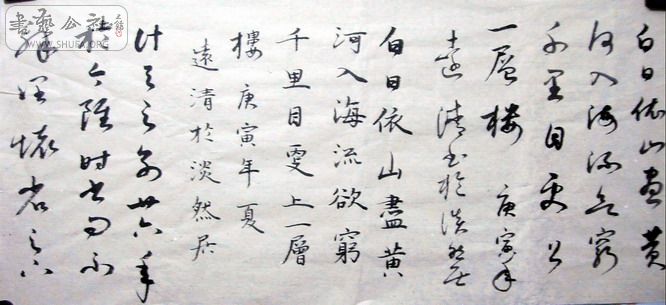 白日依山盡黄
河入海流欲窮
千里目更上
一層樓 庚寅年
遠清書於淡然居
白日依山盡黄
河入海流欲窮
千里目更上一層
樓 庚寅年夏
遠清於淡然居
六年
於今 时
懷
書藝公社
WWW.SHUFA.ORG